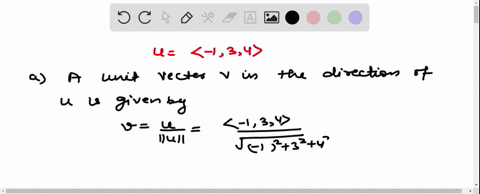 u = <-1, 3, 4>
a) A unit vector v in the direction of
u is given by
v = u / ||u|| = <-1, 3, 4> / √(-1)²+3²+4²